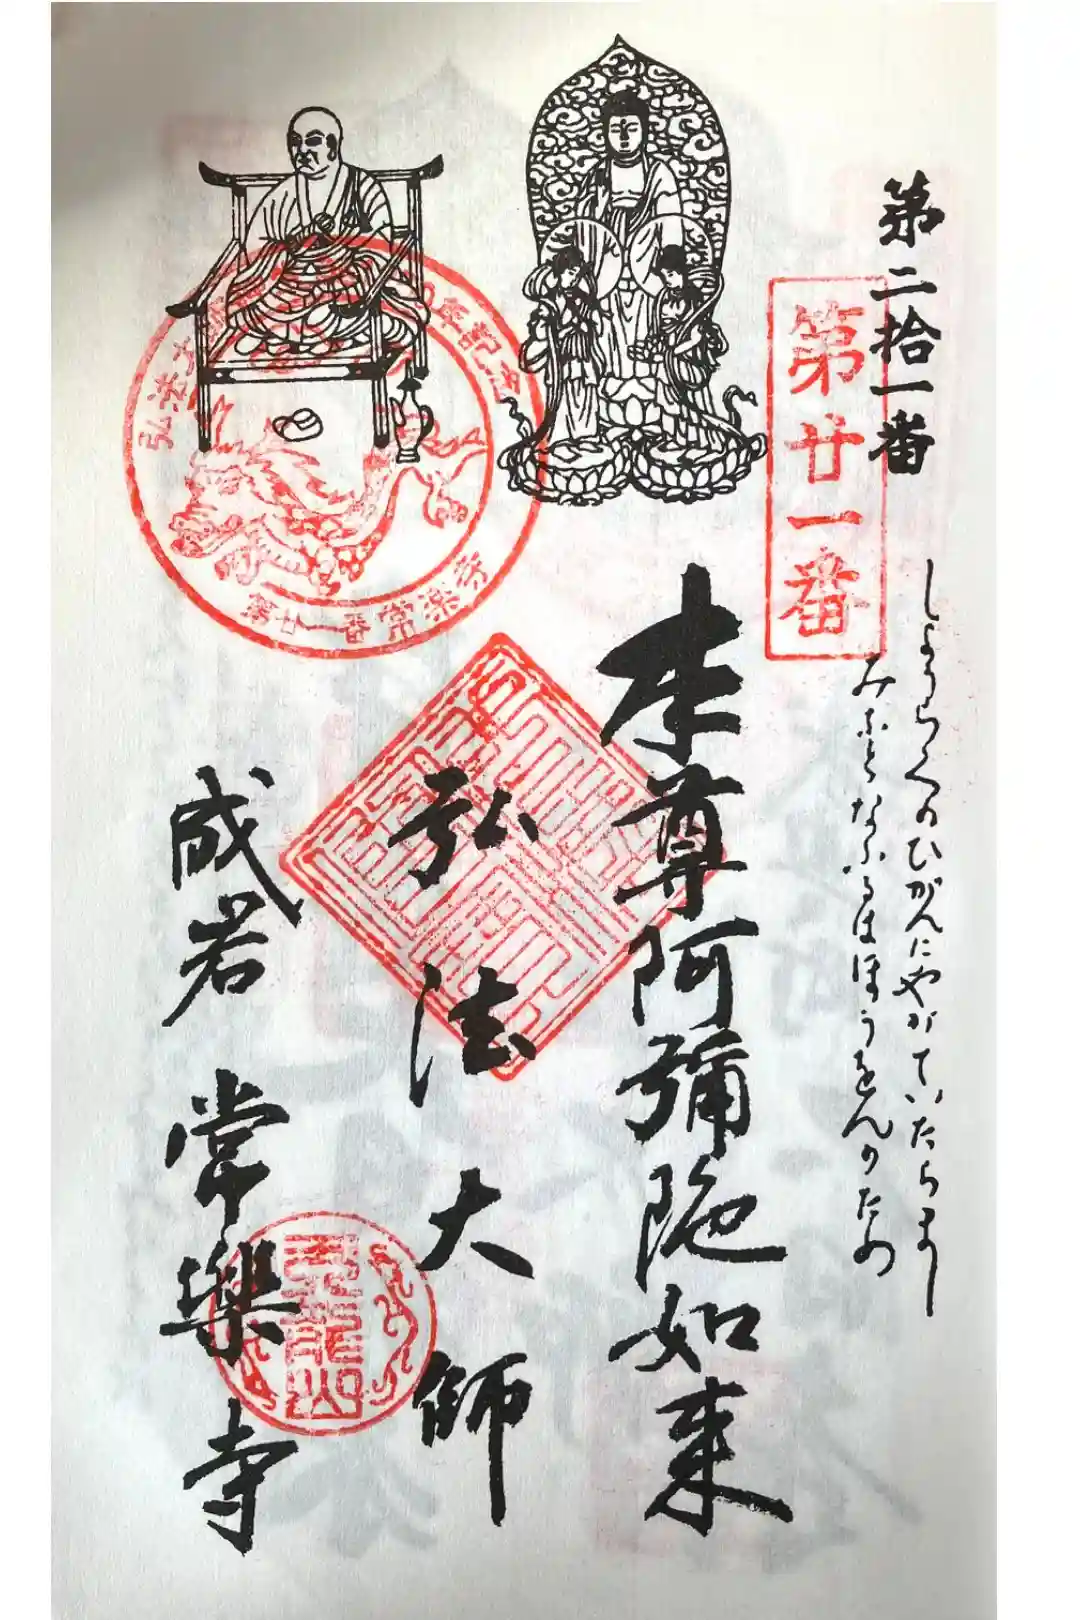 第二拾一番
第廿一番
しょうらくのひがんにやがていたらまし
みなとなふるはほうをんのため
本尊阿彌陀如来
弘法大師
成岩 常樂寺
年記念
第廿一番常楽寺